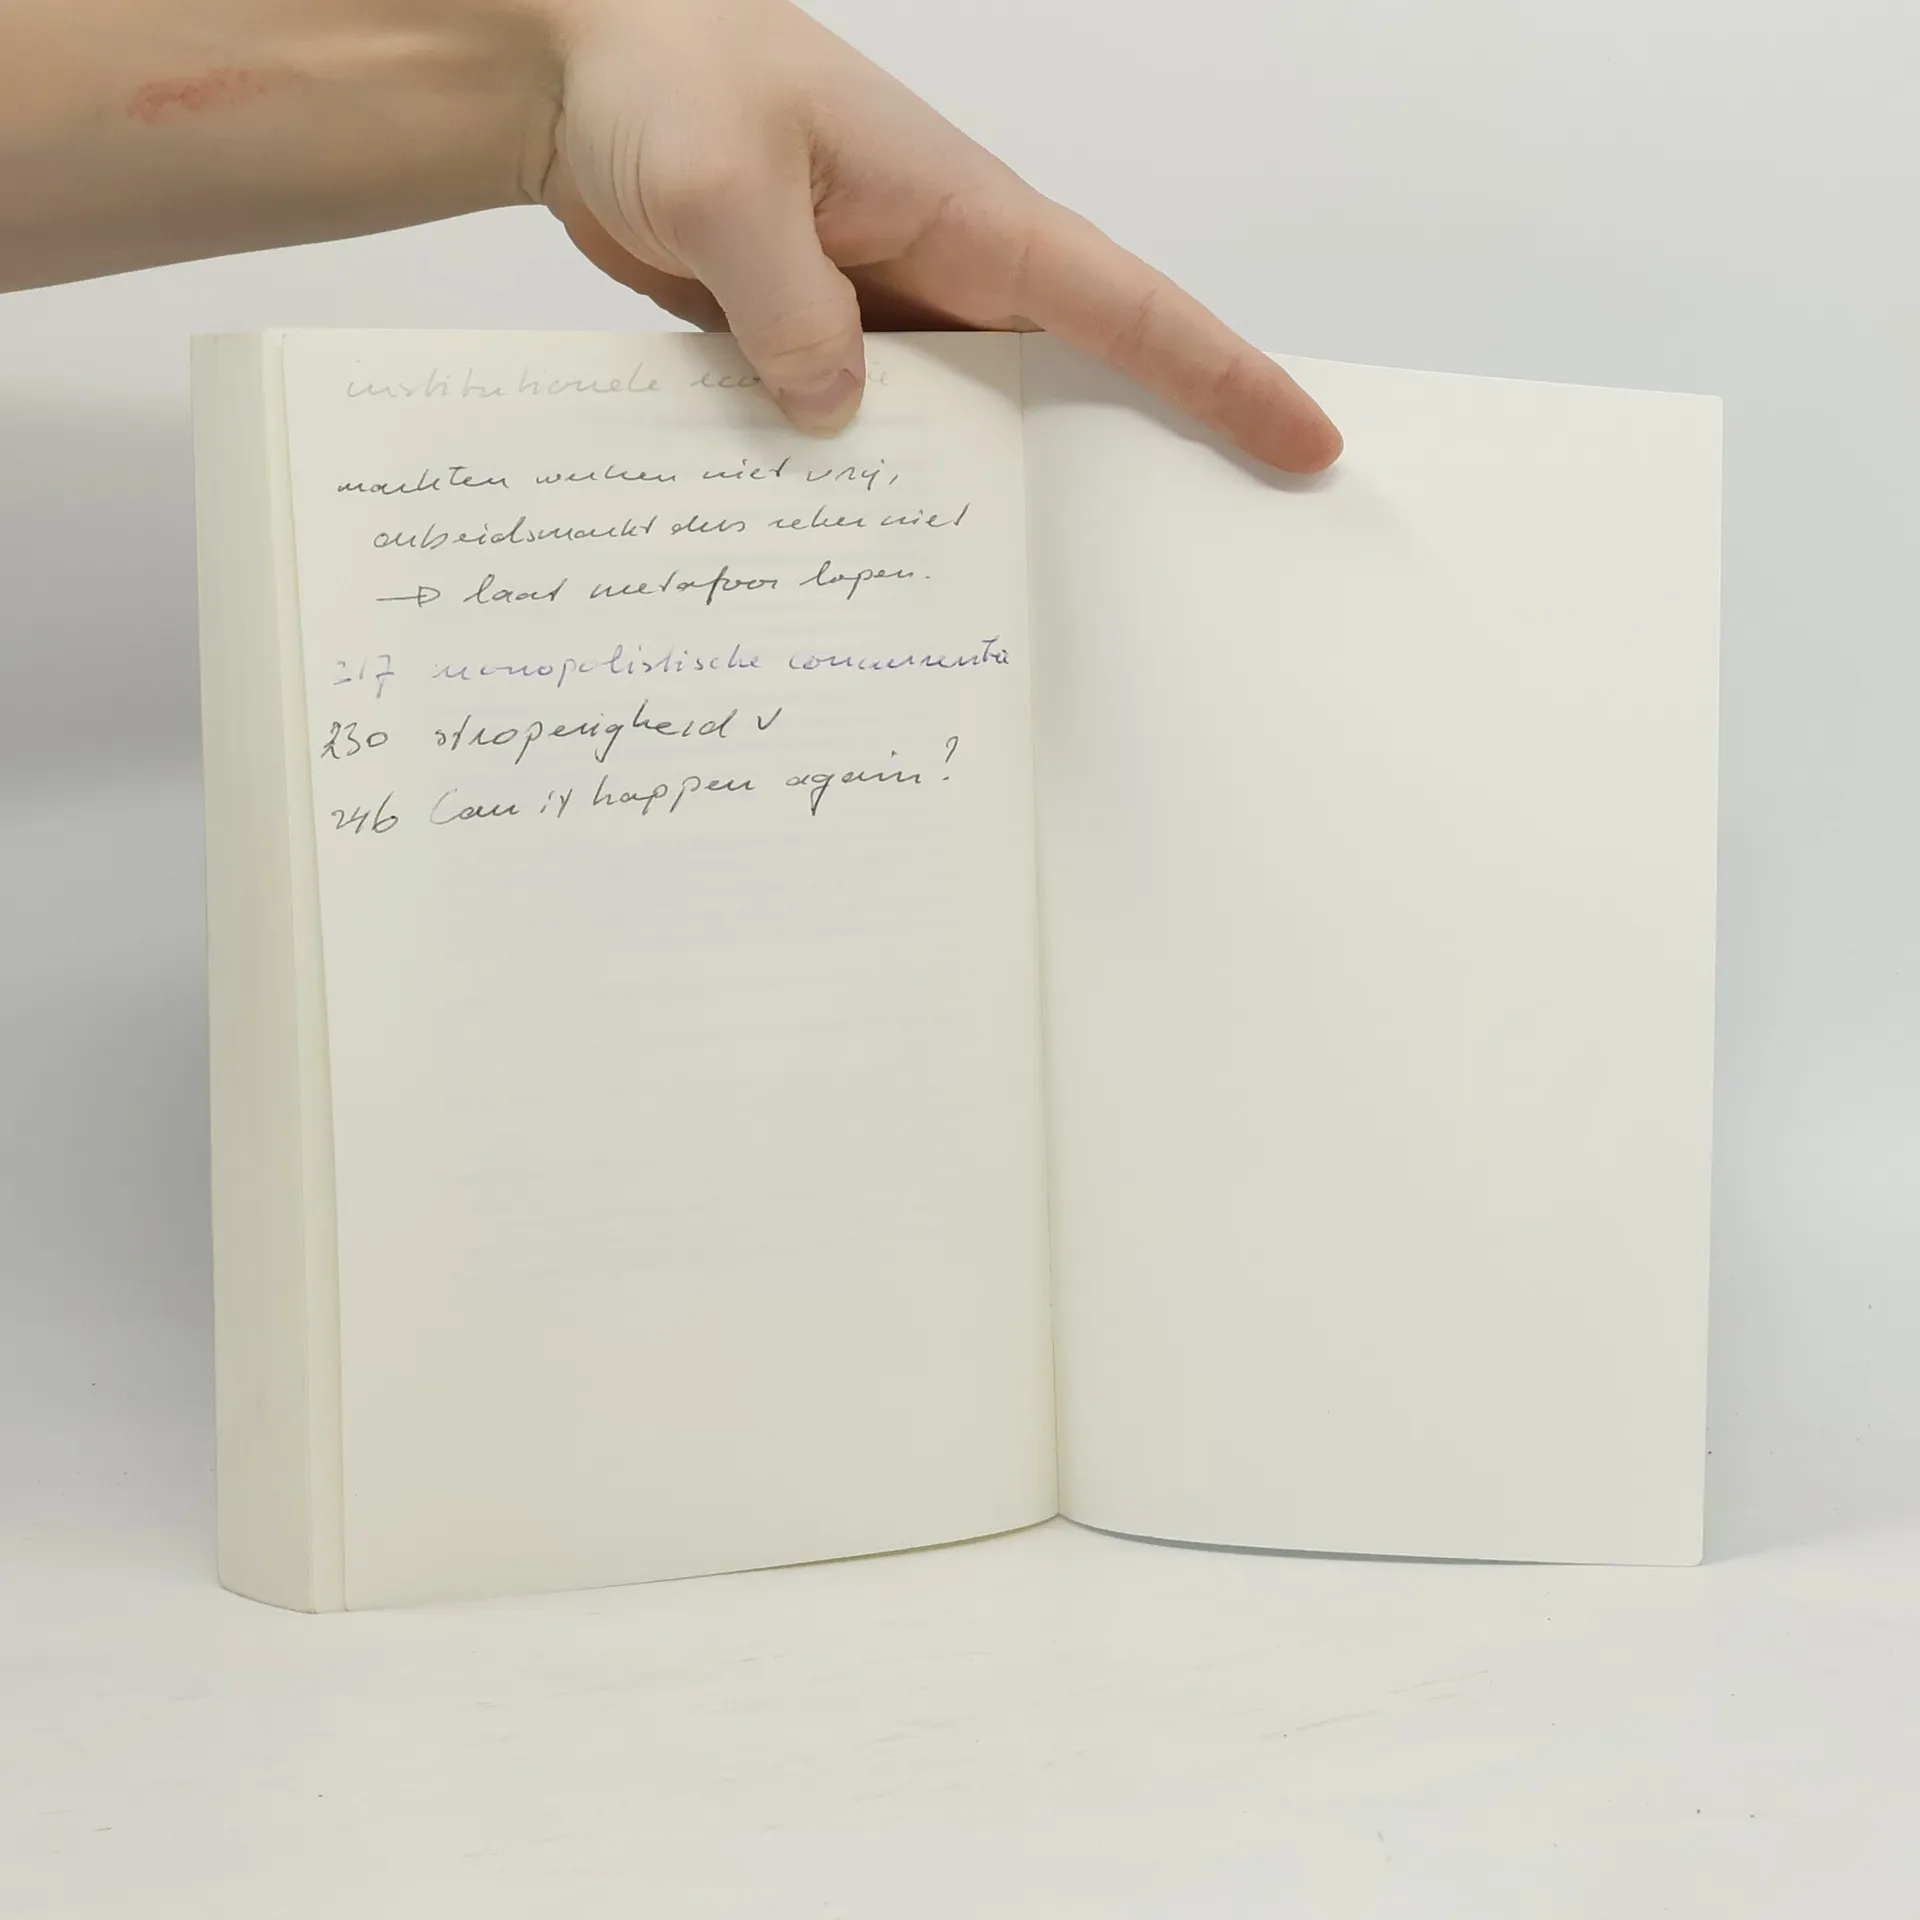 institutionele
markten werken niet vrij,
arbeidsmarkt dus zeker niet
→ laat metafoor lopen.
217 monopolistische concurrentie
230 stroperigheid v
246 Can it happen again?